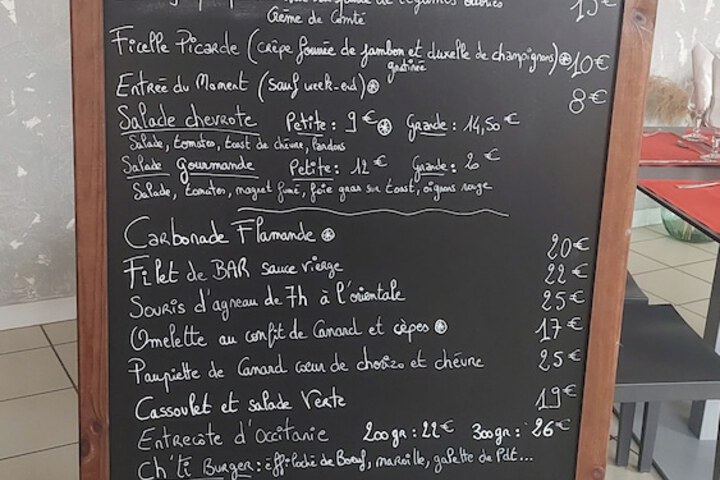 de légumes
Crème de Comté 15€
Ficelle Picarde (crêpe fourrée de jambon et duxelle de champignons) 10€
gratinée
Entrée du Moment (sauf week-end) 8€
Salade chevrote Petite: 9€ Grande: 14,50€
Salade, tomates, toast de chèvre, lardons
Salade Gourmande Petite: 12€ Grande: 20€
Salade, tomates, magret fumé, foie gras sur toast, oignons rouge
Carbonade Flamande 20€
Filet de BAR sauce vierge 22€
Souris d'agneau de 7h à l'orientale 25€
Omelette au confit de Canard et cèpes 17€
Paupiette de Canard cœur de chorizo et chèvre 25€
Cassoulet et salade Verte 19€
Entrecôte d'Occitanie 200gr: 22€ 300gr: 26€
Ch'ti Burger: effiloché de Bœuf, maroille, galette de Pdt...